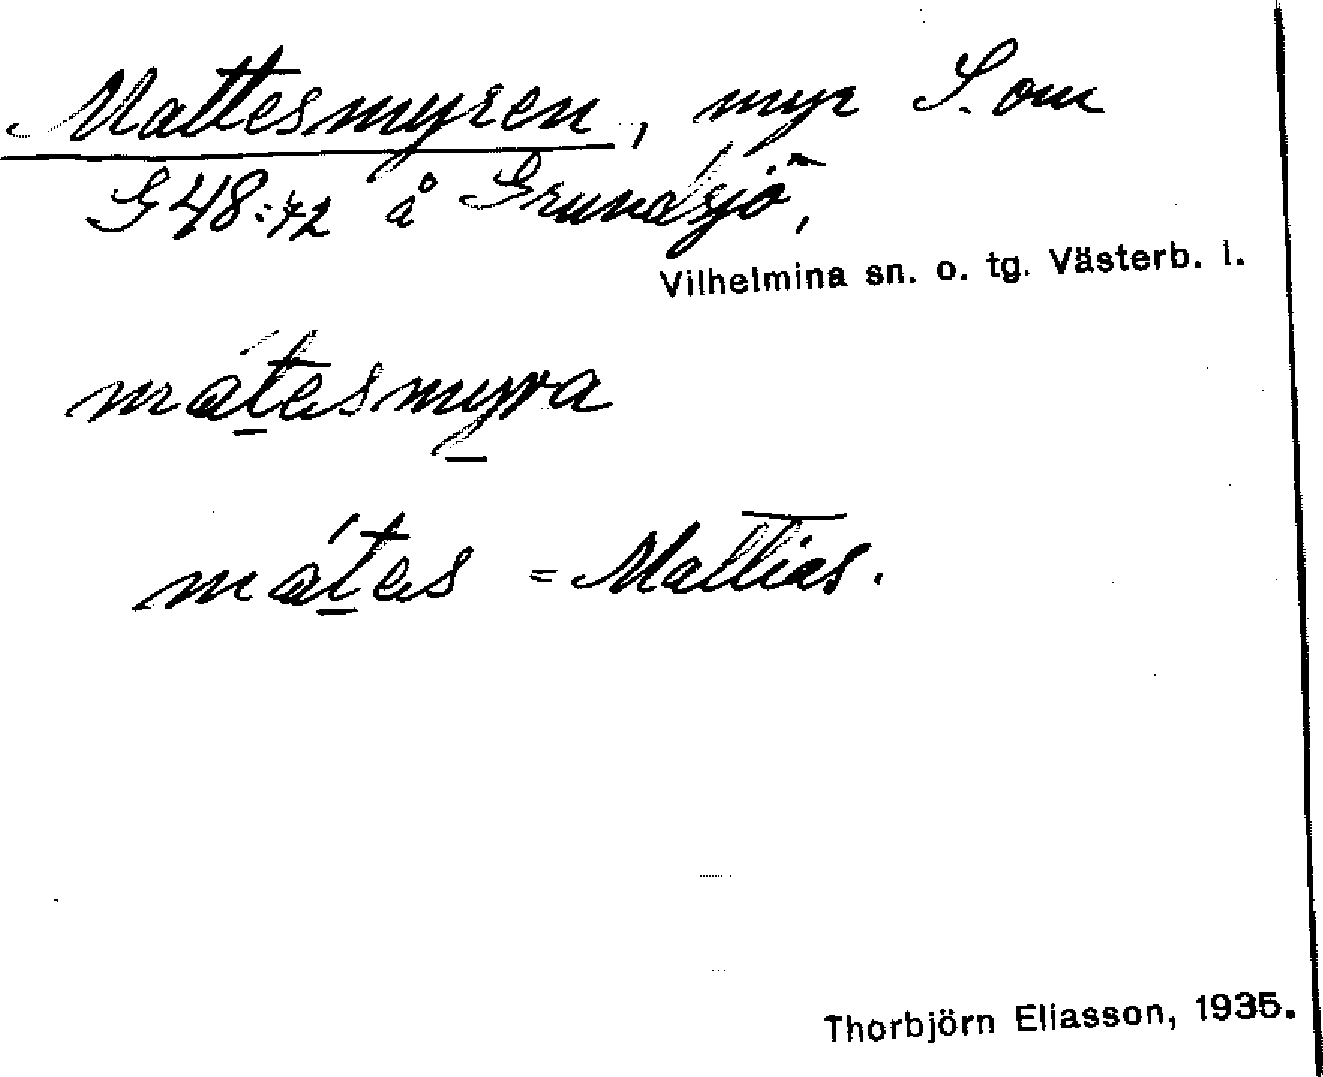 Mattesmyren, myr S. om
G 48:72 å Grundsjö,
Vilhelmina sn. o. tg. Västerb. l.
mátesmyra
mátes = Mattias.
Thorbjörn Eliasson, 1935.